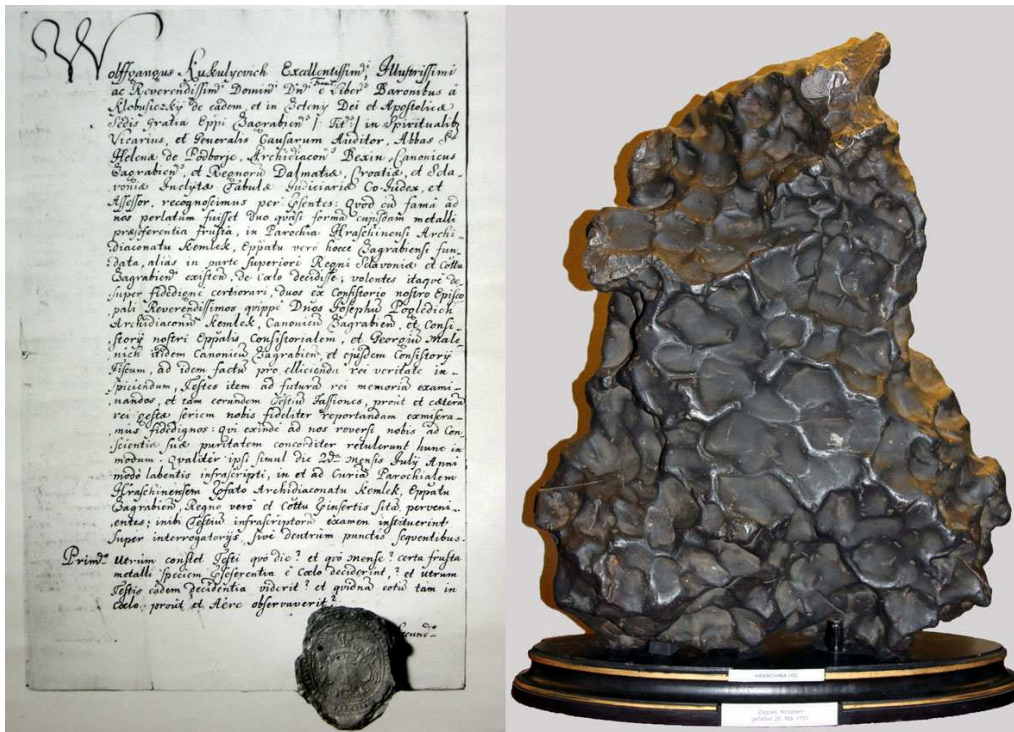 Wolffgangus Kukulyevich Excellentissimi, Illustrissimi
ac Reverendissimi Domini Dni Franci è Liberis Baronibus à
Klobusiczky de eadem, et in Zeteny Dei et Apostolicæ
Sedis gratia Eppi Zagrabien / Titl / in Spiritualib9
Vicarius, et Generalis Causarum Auditor, Abbas S
Helenæ de Podborje, Archidiacon Bexin, Canonicus
Zagrabien, et Regnorū Dalmatiæ, Croatiæ, et Scla-
voniæ Inclytæ Tabulæ Judiciariæ Co-Judex, et
Assessor, recognoscimus per psentes: Qvod cū fama ad
nos perlatum fuisset duo qvasi forma cujusdam metalli
præseferentia frusta, in Parochia Hraschinensi Archi-
diaconatu Kemlek, Eppatu verò hocce Zagrabiensi fun-
data, alias in parte superiori Regni Sclavoniæ et Cottu
Zagrabien existen, de Cœlo decidisse; volentes itaqve de-
super fidedigne certiorari, duos ex Consistorio nostro Episco
pali Reverendissimos qvippe Dnos Josephū Pogledich
Archidiaconū Kemlek, Canonicū Zagrabien, et Consi-
storij nostri Eppalis Consistorialem, et Georgiū Male-
nich itidem Canonicū Zagrabien, et ejusdem Consistorij
Fiscum, ad idem factū pro elliciendu rei veritate in-
spiciendum, Testes item ad futurā rei memoriā exami-
nandos, et tam eorundem Testiū Fassiones, proūt et cætera
rei gestæ seriem nobis fideliter reportandam exmisera-
mus fidedignos: qvi exinde ad nos reversi nobis ad Con-
scientiæ suæ puritatem concorditer retulerunt hunc in
modum: Qvaliter ipsi simul die mensis Julij Anni
modo labentis infrascripti, in et ad Curiā Parochialem
Hraschinensem pfato Archidiaconatu Kemlek, Eppatu
Zagrabien, Regno verò et Cottu pinsertis sitā perveni-
entes; inibi Testiū infrascriptorū examen instituerint
super interrogatorijs, sive deutrum punctis seqventibus.
Primò Utrum constet Testi qvò die? et qvò mense? certa frusta
metalli speciem pseferentia è Cœlo deciderint,? et utrum
Testis eadem decidentia viderit? et qvidnā totū tam in
Cœlo, proūt et Aëre observaverit?
Secundò
HRASCHINA (ID)
Zagreb, Kroatien
gefallen 26. Mai 1751